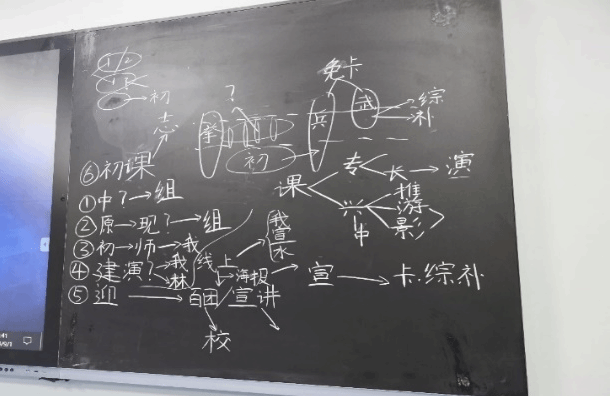 初
免卡
?
拳
兵
武
综
补
初
⑥初课
课
专
长→演
兴
推
游
影
中
①中?→组
②原→现?→组
③初→师→我
④建演?→我
林
线上
海报
宣讲
我
宣
宣→卡.综补
⑤迎→百团
校